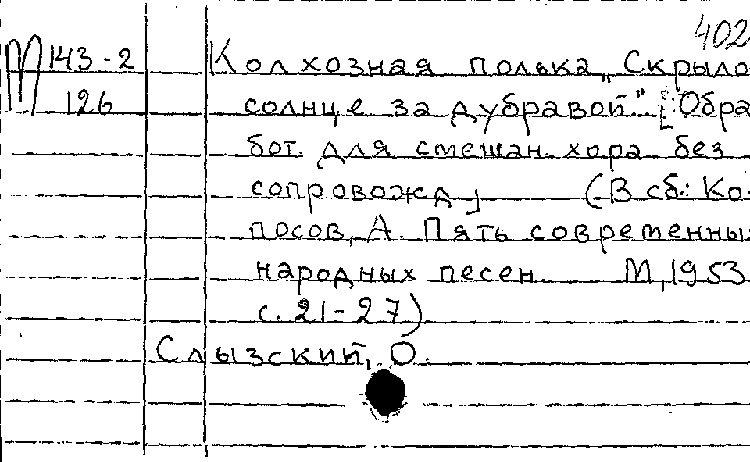 402
М 143-2 Колхозная полька „Скрыло
126 солнце за дубравой" [Обра
бот. для смешан. хора без
сопровожд.] (В сб.: Ко-
лосов, А. Пять современны
народных песен. М., 1953.
с. 21-27)
Слызский, О.